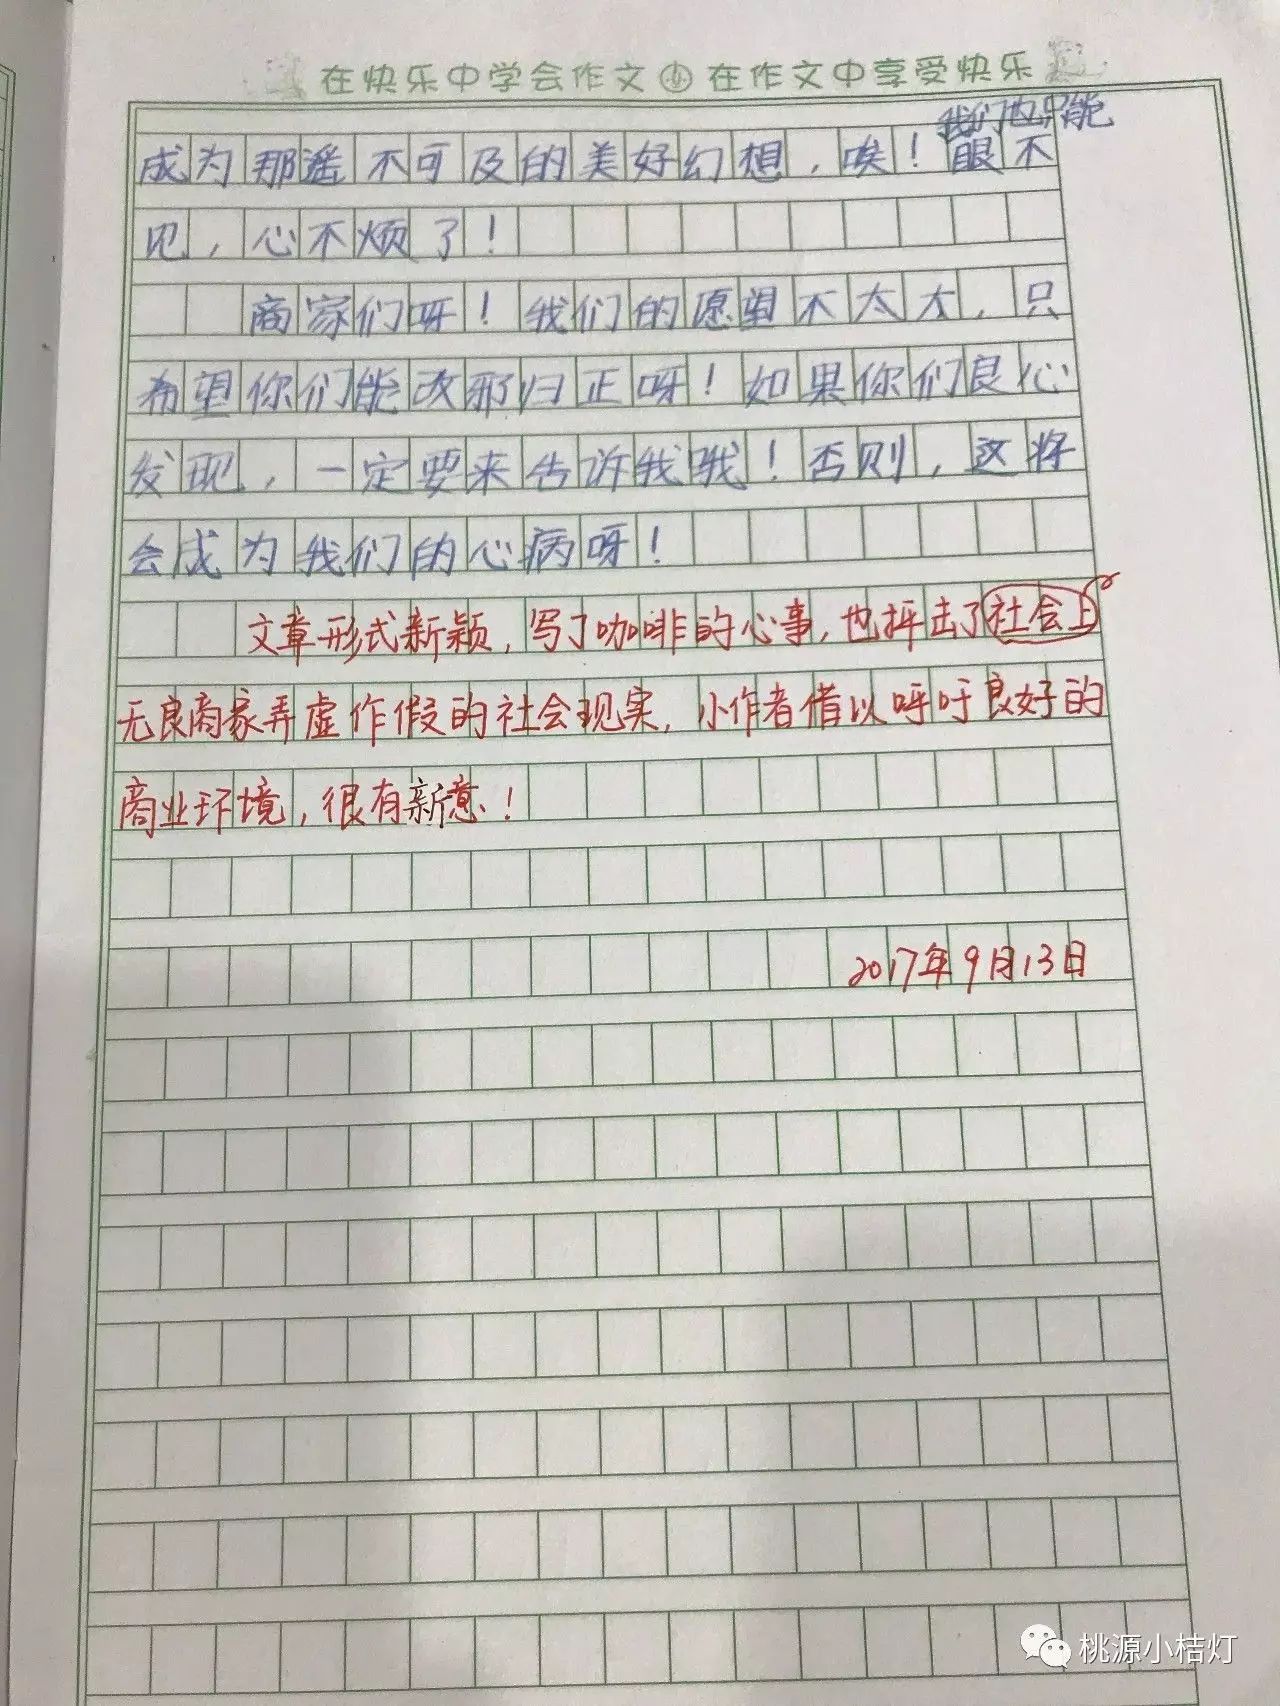 在快乐中学会作文 在作文中享受快乐
我们也只能
成为那遥不可及的美好幻想，唉！眼不
见，心不烦了！
商家们呀！我们的愿望不太大，只
希望你们能改邪归正呀！如果你们良心
发现，一定要来告诉我哦！否则，这将
会成为我们的心病呀！
文章形式新颖，写了咖啡的心事，也抨击了社会上
无良商家弄虚作假的社会现实，小作者借以呼吁良好的
商业环境，很有新意！
2017年9月13日
桃源小桔灯